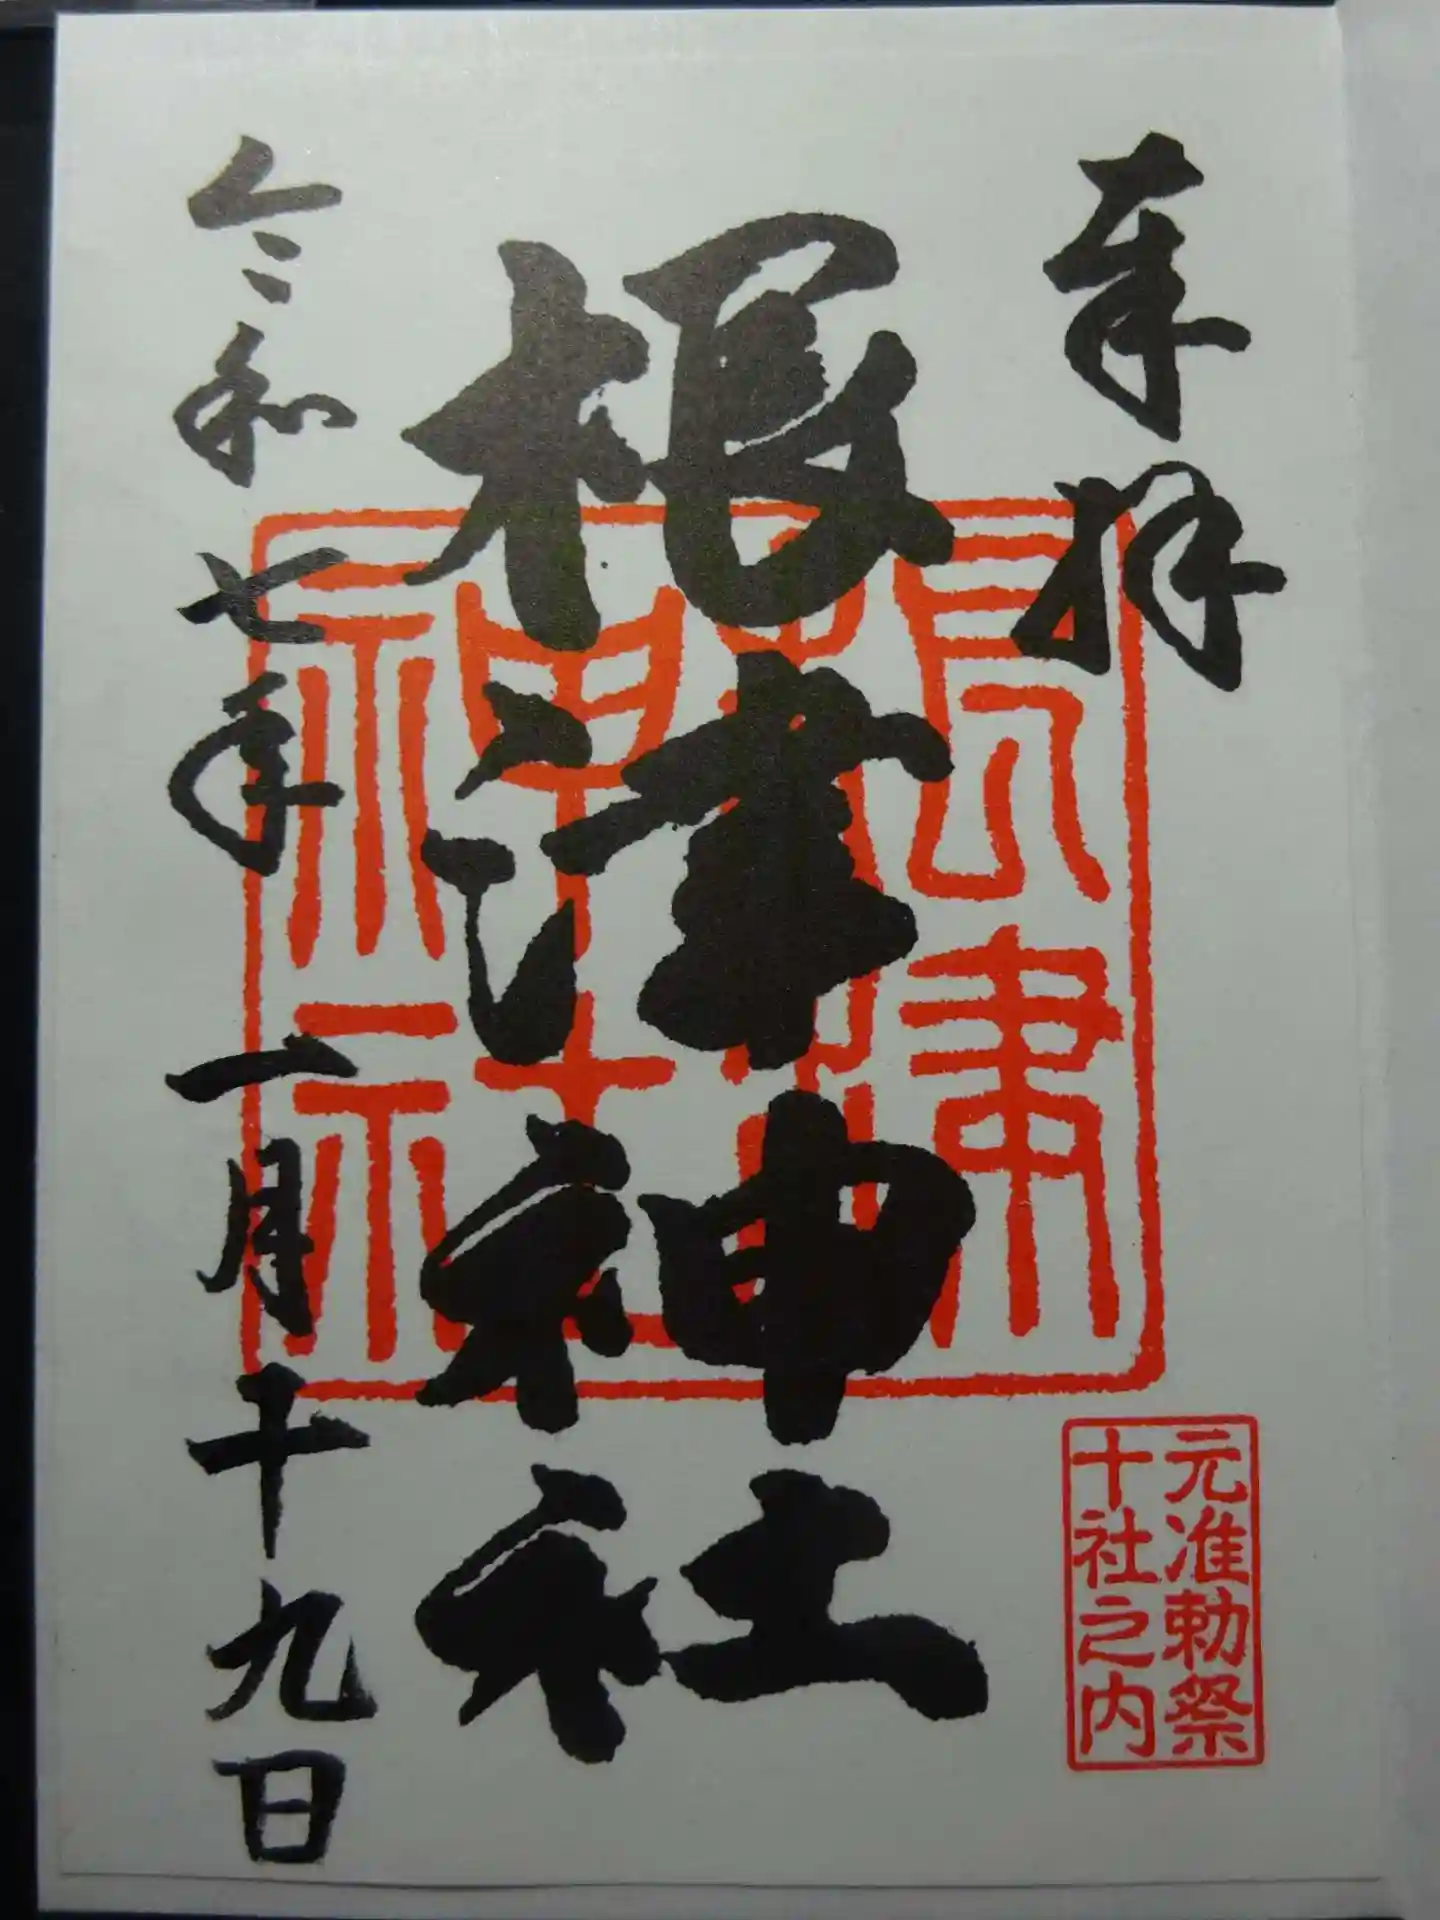 奉拝
元准勅祭
十社之内
根津神社
根津
神社
令和七年一月十九日